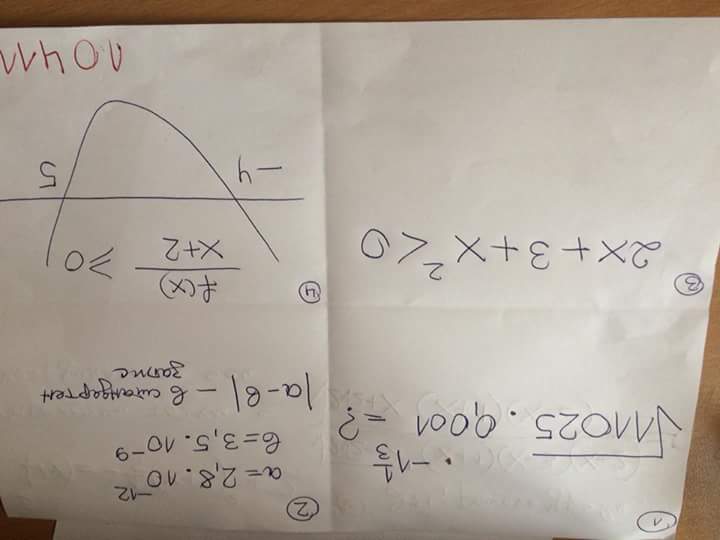 ①
√11025 · 0,001^(-1 1/3) = ?
②
a = 2,8 · 10^-12
в = 3,5 · 10^-9
|a-в| - в стандартен
запис
③
2x + 3 + x² < 0
④
f(x)
x+2
≥ 0
-4
5